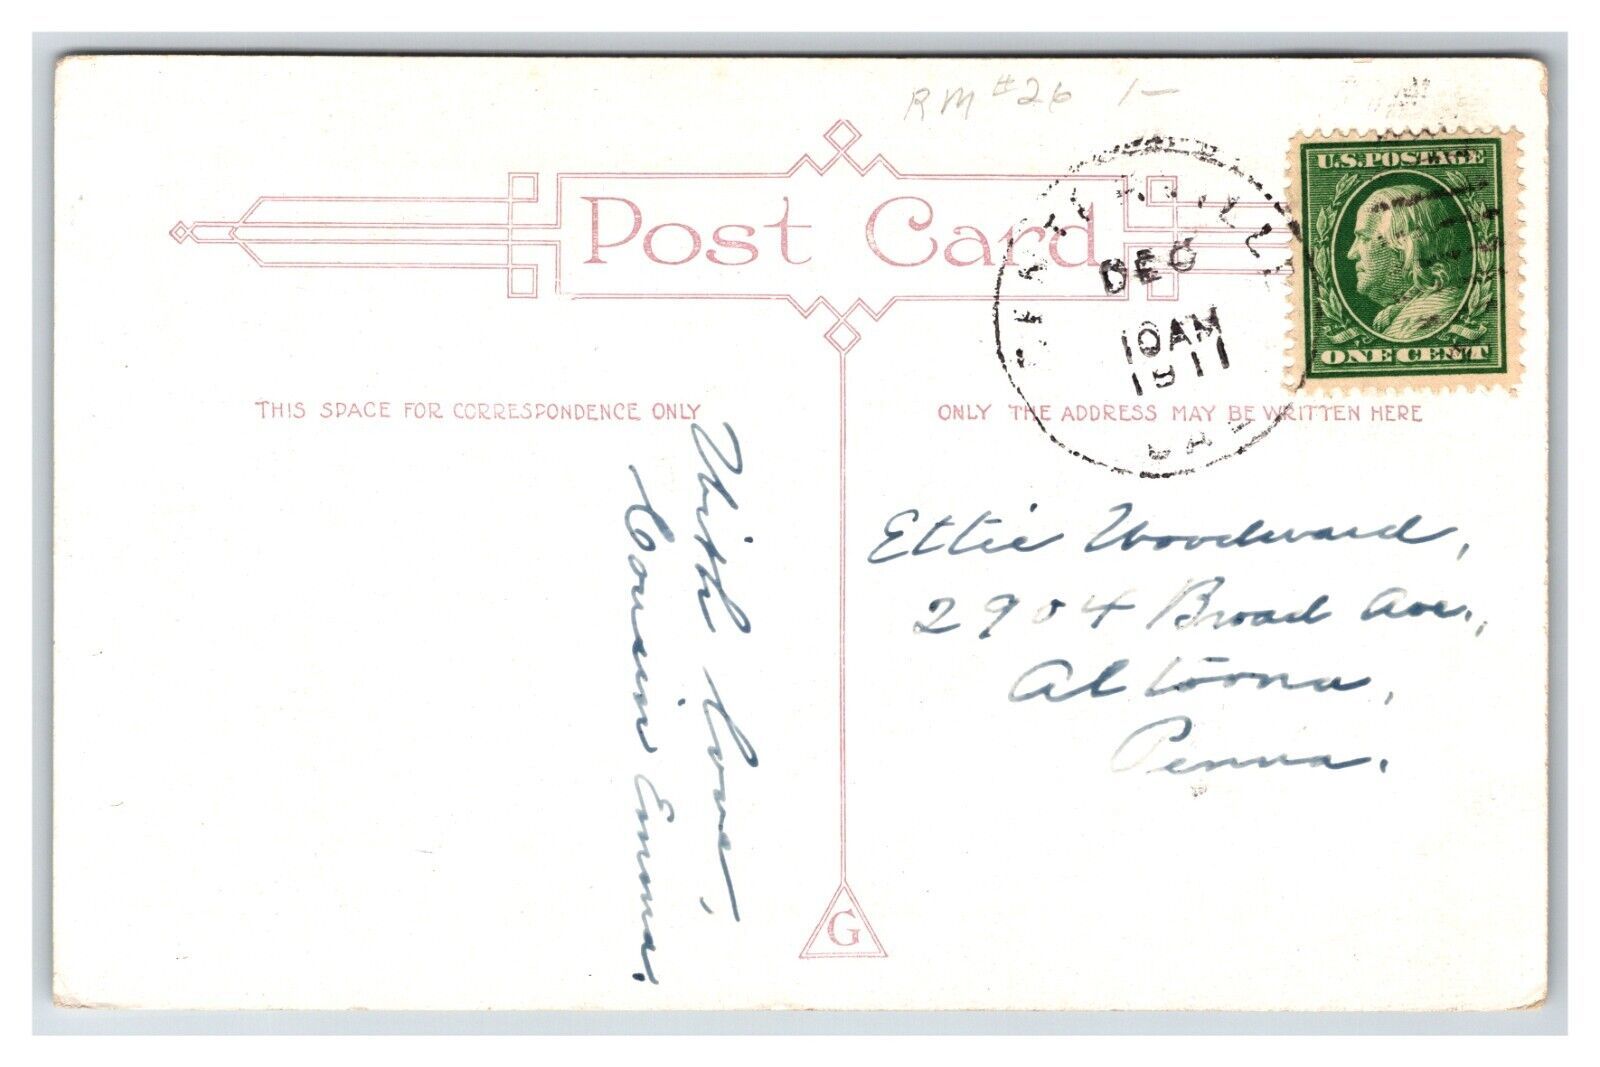 RM #26 1—
Post Card
U.S. POSTAGE
ONE CENT
DEC
10 AM
1911
THIS SPACE FOR CORRESPONDENCE ONLY
ONLY THE ADDRESS MAY BE WRITTEN HERE
With Love,
Cousin Emma.
Ettie Woodward,
2904 Broad Ave.,
Altoona,
Penna.
G